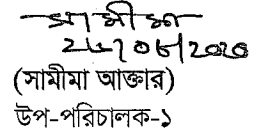 সামীমা
২৫/০৮/২০২০
(সামীমা আক্তার)
উপ-পরিচালক-১